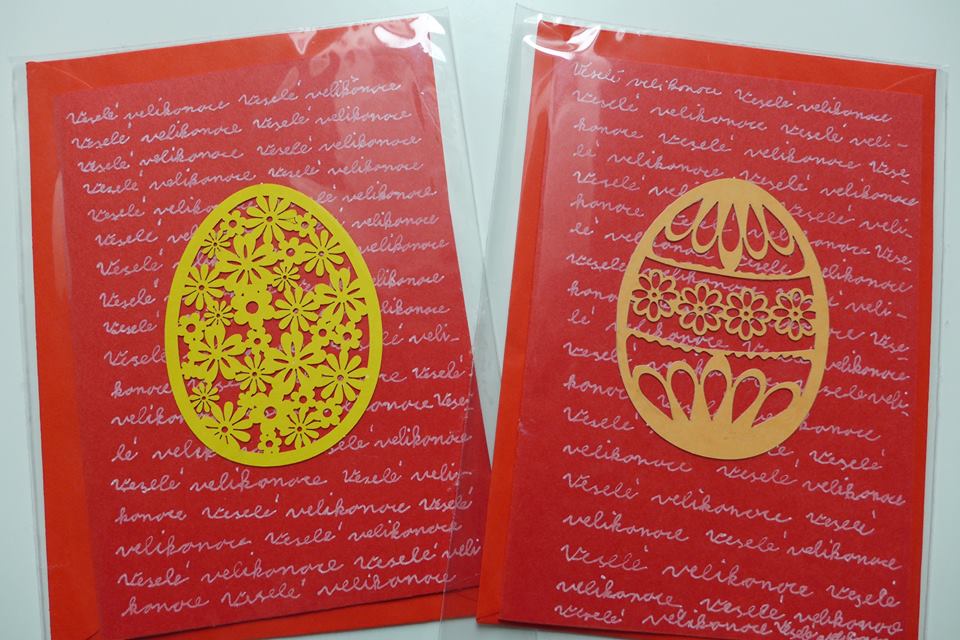 Veselé velikonoce Veselé velikonoce
Veselé velikonoce Veselé velikonoce
Veselé velikonoce Veselé velikonoce
Veselé velikonoce Veselé velikonoce
Veselé velikonoce
Veselé velikonoce
Veselé velikonoce
Veselé
Veselé
Veselé veli-
konoce Veselé
velikonoce velikonoce Vese
lé velikonoce Veselé velikonoce
Veselé velikonoce Veselé veli-
konoce Veselé velikonoce Veselé
velikonoce Veselé velikonoce
Veselé velikonoce Veselé veli
konoce Veselé velikonoce
Veselé velikonoce Veselé velikonoce
Veselé velikonoce Veselé veli-
konoce Veselé velikonoce Vese-
lé velikonoce Veselé velikonoce
Veselé Veselé veli-
konoce Vese-
lé velikonoce
Veselé Veselé veli-
konoce Vese-
lé velikonoce
Veselé Veselé veli-
konoce
Veselé velikonoce
velikonoce Veselé velikonoce
Veselé velikonoce Veselé
velikonoce Veselé velikonoce
Veselé velikonoce Veselé
velikonoce Veselé velikonoce
Veselé velikonoce